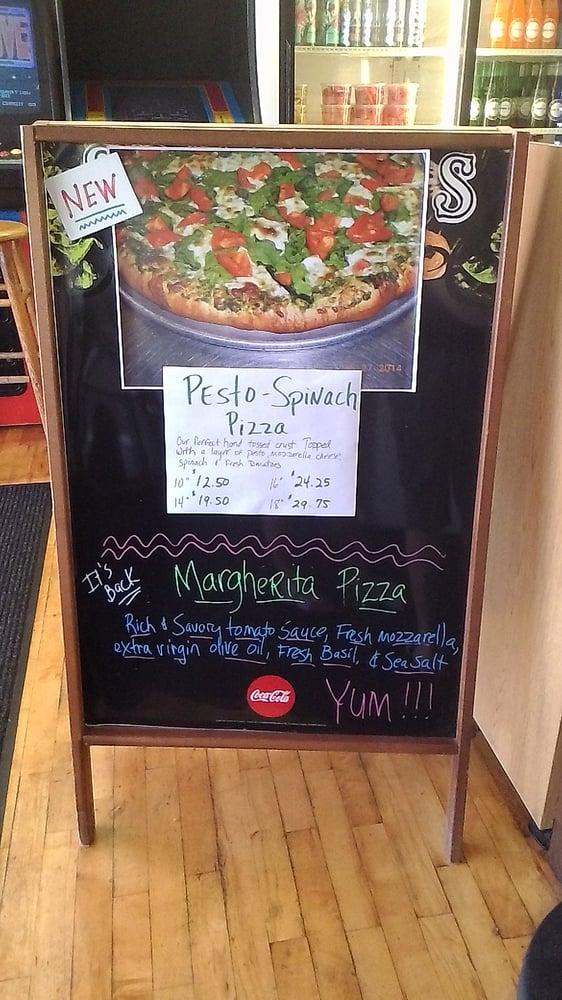 NEW
S
27 2014
Pesto-Spinach
Pizza
Our Perfect hand tossed crust Topped
with a layer of pesto, mozzarella cheese,
spinach & Fresh Tomatoes
10" $12.50 16" $24.25
14" $19.50 18" $29.75
It's
Back
Margherita Pizza
Rich & Savory tomato Sauce, Fresh mozzarella,
extra virgin olive oil, Fresh Basil, & Sea Salt
Coca-Cola
YUM!!!